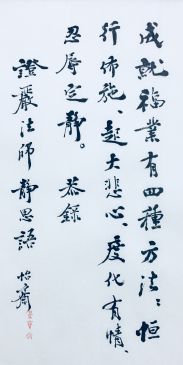 成就福業有四種方法：恒
行佈施、起大悲心、度化有情、
忍辱定靜。恭錄
證嚴法師靜思語 怡齋